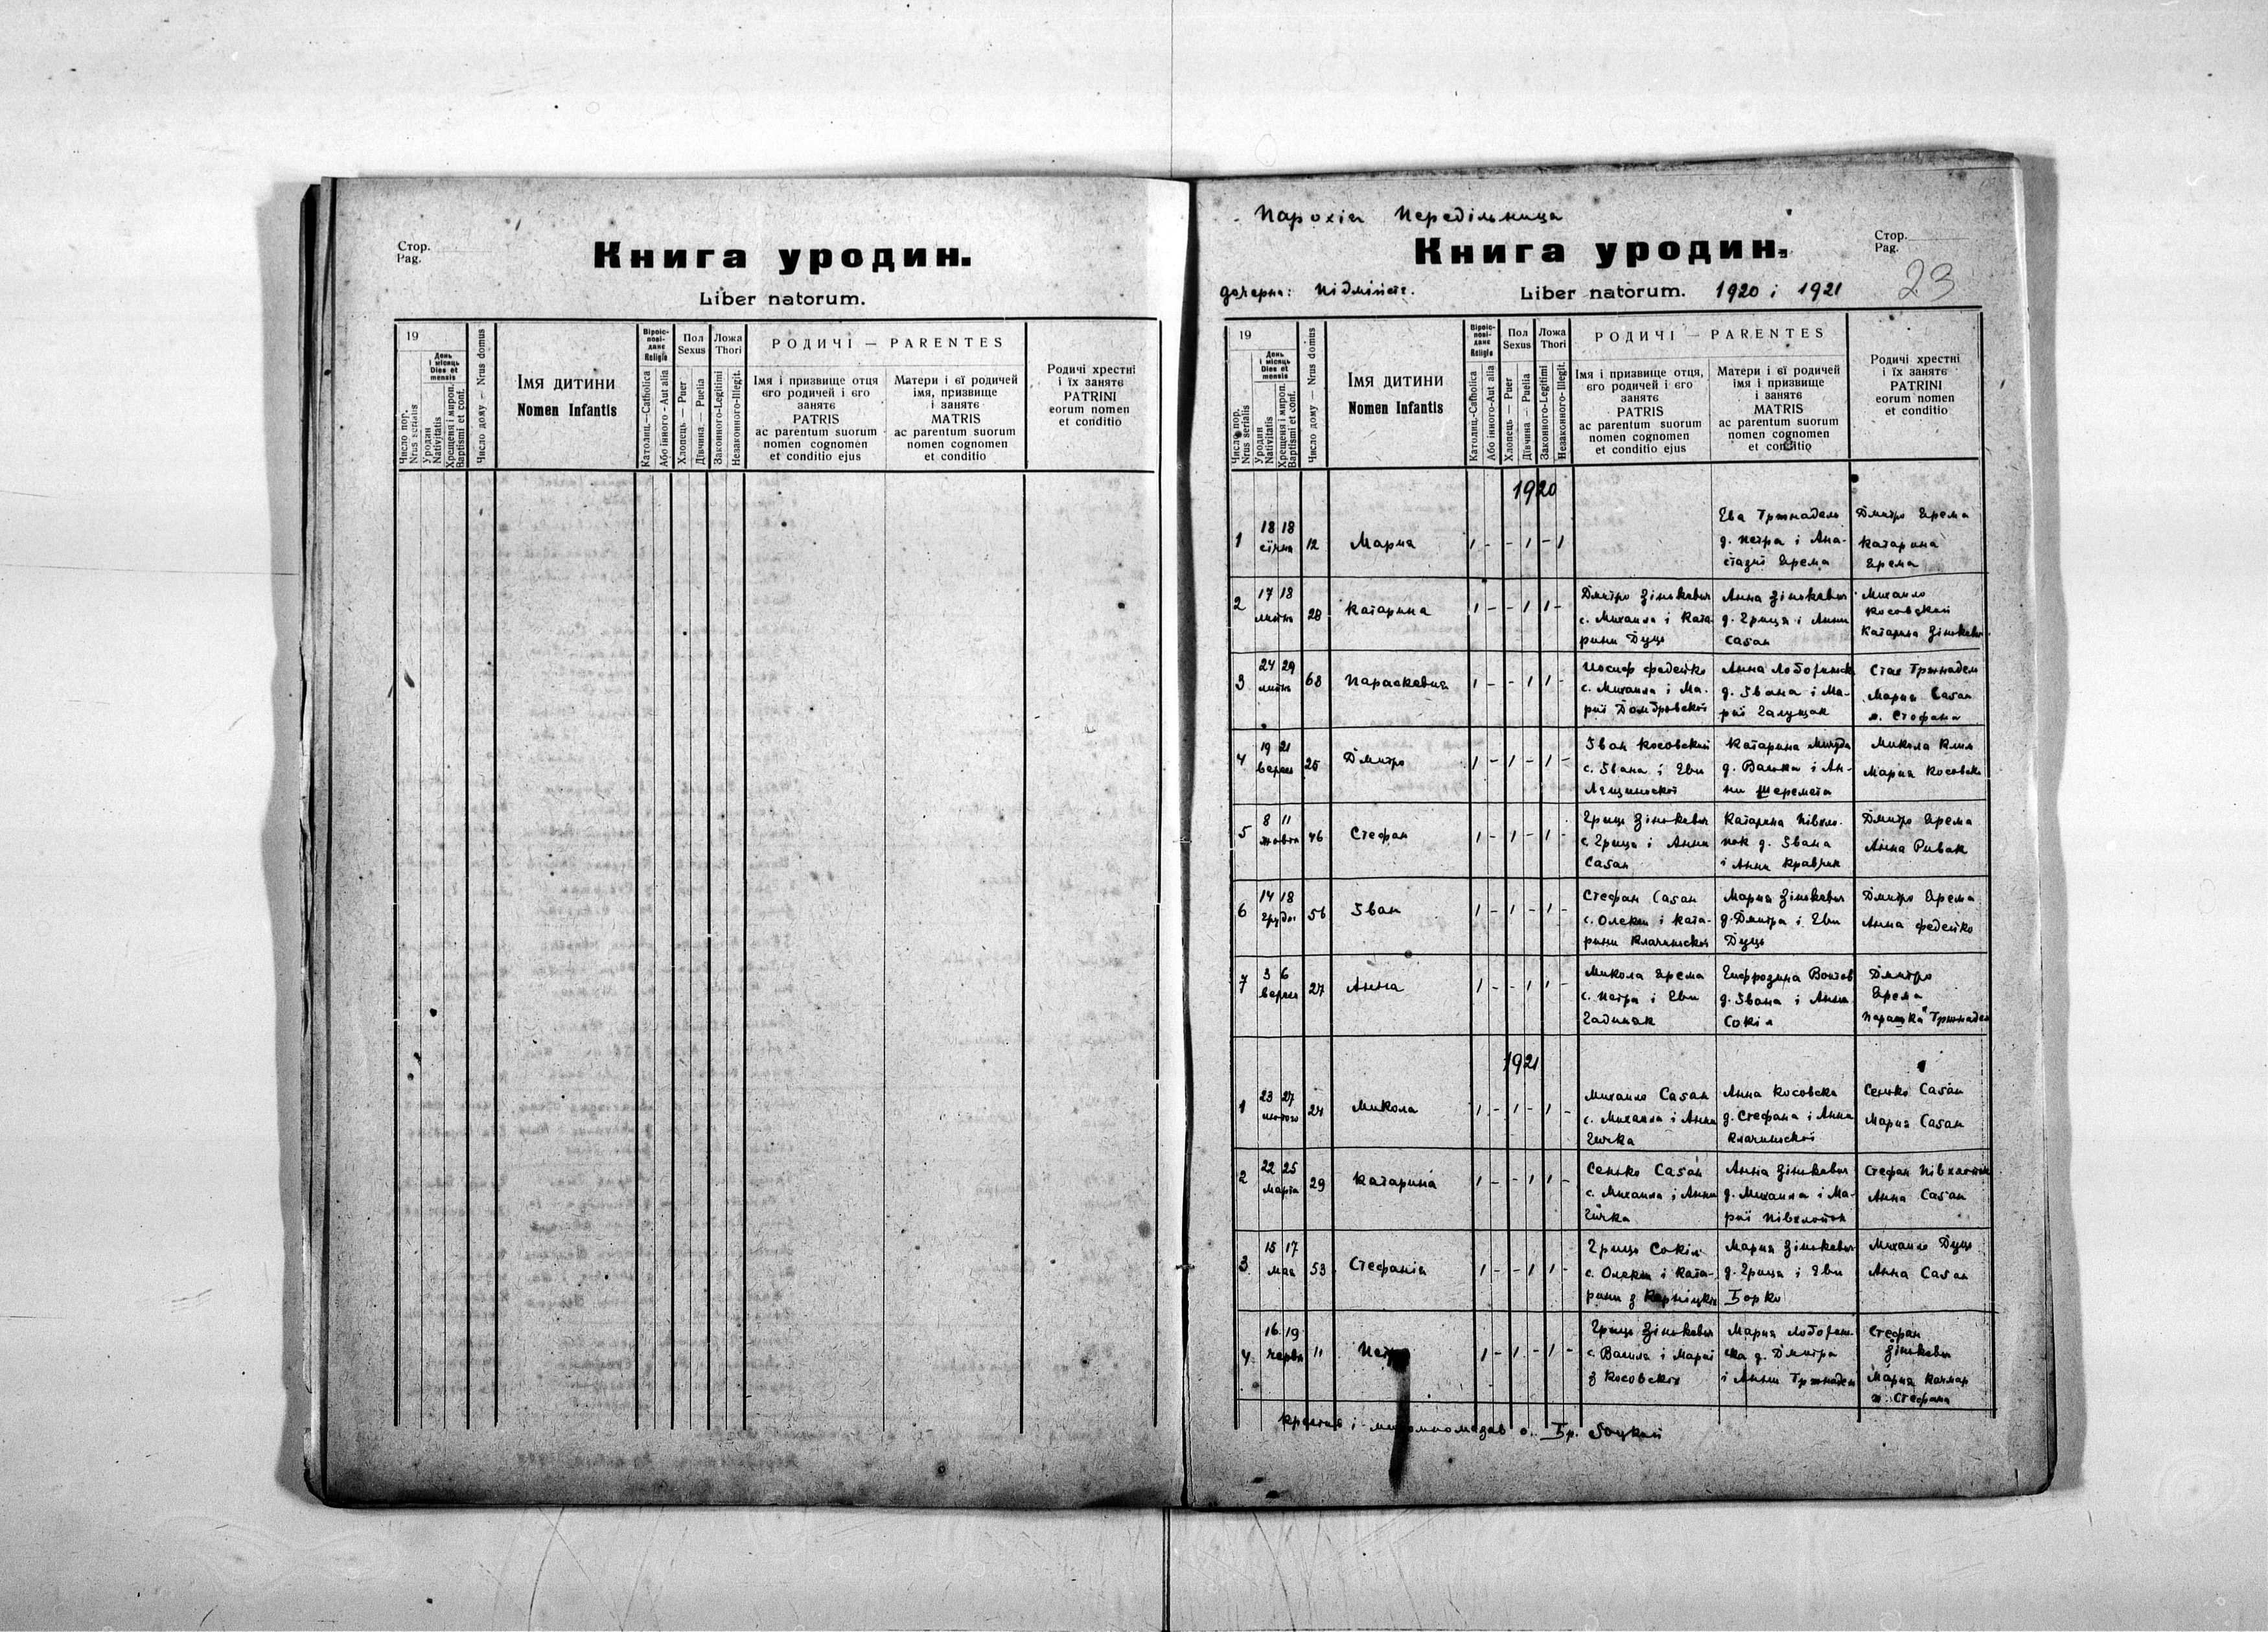 Стор.
Pag.
Книга уродин.
Liber natorum.
19
Число пор.
Nrus serialis
День
і місяць
Dies et
mensis
Уродин
Nativitatis
Хрещеня і мироп.
Baptismi et conf.
Число дому — Nrus domus
Імя дитини
Nomen Infantis
Віроіс-
пові-
данє
Religio
Католиц.-Catholica
Або інного-Aut alia
Пол
Sexus
Хлопець — Puer
Дівчина — Puella
Ложа
Thori
Законного-Legitimi
Незаконного-Illegit.
РОДИЧІ — PARENTES
Імя і призвище отця
єго родичей і єго
занятє
PATRIS
ac parentum suorum
nomen cognomen
et conditio ejus
Матери і єї родичей
імя, призвище
і занятє
MATRIS
ac parentum suorum
nomen cognomen
et conditio
Родичі хрестні
і їх занятє
PATRINI
eorum nomen
et conditio
Парохія Передільниця
Книга уродин.
Стор.
Pag.
23
дочерна:
Liber natorum. 1920 і 1921
19
Число пор.
Nrus serialis
День
і місяць
Dies et
mensis
Уродин
Nativitatis
Хрещеня і мироп.
Baptismi et conf.
Число дому — Nrus domus
Імя дитини
Nomen Infantis
Віроіс-
пові-
данє
Religio
Католиц.-Catholica
Або інного-Aut alia
Пол
Sexus
Хлопець — Puer
Дівчина — Puella
Ложа
Thori
Законного-Legitimi
Незаконного-Illegit.
РОДИЧІ — PARENTES
Імя і призвище отця,
єго родичей і єго
занятє
PATRIS
ac parentum suorum
nomen cognomen
et conditio ejus
Матери і єї родичей
імя і призвище
і занятє
MATRIS
ac parentum suorum
nomen cognomen
et conditio
Родичі хрестні
і їх занятє
PATRINI
eorum nomen
et conditio
1920
1 18 18 січня 12 Мария 1 - - 1 - 1
Ева Тржнадель
д. Петра і Ана-
стазиї Ярема
Дмитро Ярема
Катарина
Ярема
2 17 18 28 Катарина 1 - - 1 1 -
Дмитро Зінькевич
с. Михаила і Ката-
рини Дуць
Анна Зінькевич
д. Гриця і Анни
Сасан
Михаило
Косовский
Катарина Зінькевич
3 24 29 68 Параскевия 1 - - 1 1 -
Иосиф Федейко
с. Михаила і Ма-
риї Домбровскої
Анна
д. Івана і Ма-
риї Галущак
Стах Тржнадель
Мария Сасан
ж. Стефана
4 19 21 верес 25 Дмитро 1 - 1 - 1 -
Іван Косовский
с. Івана і Еви
Катарина
д. Васька і Ан-
ни Шеремета
Микола Клим
Мария Косовска
5 8 11 жовтн 46 Стефан 1 - 1 - 1 -
Гриць Зінькевич
с. Гриця і Анни
Сасан
Катарина Півхло-
пок д. Івана
і Анни Кравчик
Дмитро Ярема
Анна Рибак
6 14 18 грудн 56 Іван 1 - 1 - 1 -
Стефан Сасан
с. Олекси і Ката-
рини Клачинскої
Мария Зінькевич
д. Дмитра і Еви
Дуць
Дмитро Ярема
Анна Федейко
7 3 6 верес 27 Анна 1 - - 1 1 -
Микола Ярема
с. Петра і Еви
Гадиняк
д. Івана і Анни
Сокіл
Дмитро
Ярема
Парашка Тржнадель
1921
1 23 27 лютого 24 Микола 1 - 1 - 1 -
Михаило Сасан
с. Михаила і Анни
Гичка
Анна Косовска
д. Стефана і Анни
Клачинскої
Сенько Сасан
Мария Сасан
2 22 25 марта 29 Катарина 1 - - 1 1 -
Сенько Сасан
с. Михаила і Анни
Гичка
Анна Зінькевич
д. Михаила і Ма-
риї Півхлопок
Стефан Півхлопок
Анна Сасан
3 15 17 мая 53 Стефанія 1 - - 1 1 -
Гриць Сокіл
с. Олекси і Ката-
рини з
Мария Зінькевич
д. Гриця і Еви
Борко
Михаило Дуць
Анна Сасан
4 16 19 червн 11 Петро 1 - 1 - 1 -
Гриць Зінькевич
с. Василя і Мариї
з Косовских
Мария
ска д. Дмитра
і Анни Тржнадель
Стефан
Зінькевич
Мария Качмар
ж. Стефана
Крестив і миропомазав о. Бр.